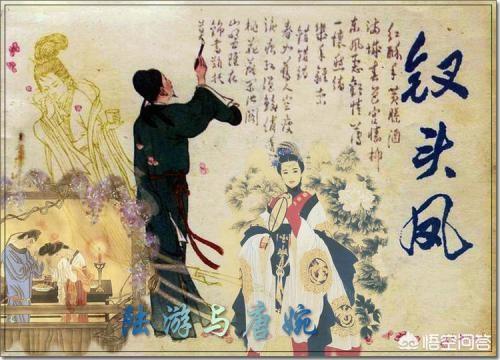 钗头凤
红酥手黄縢酒
满城春色宫墙柳
东风恶欢情薄
一怀愁绪
几年离索
错错错
春如旧人空瘦
泪痕红浥鲛绡透
桃花落闲池阁
山盟虽在
锦书难托
莫
陆游与唐婉
悟空问答